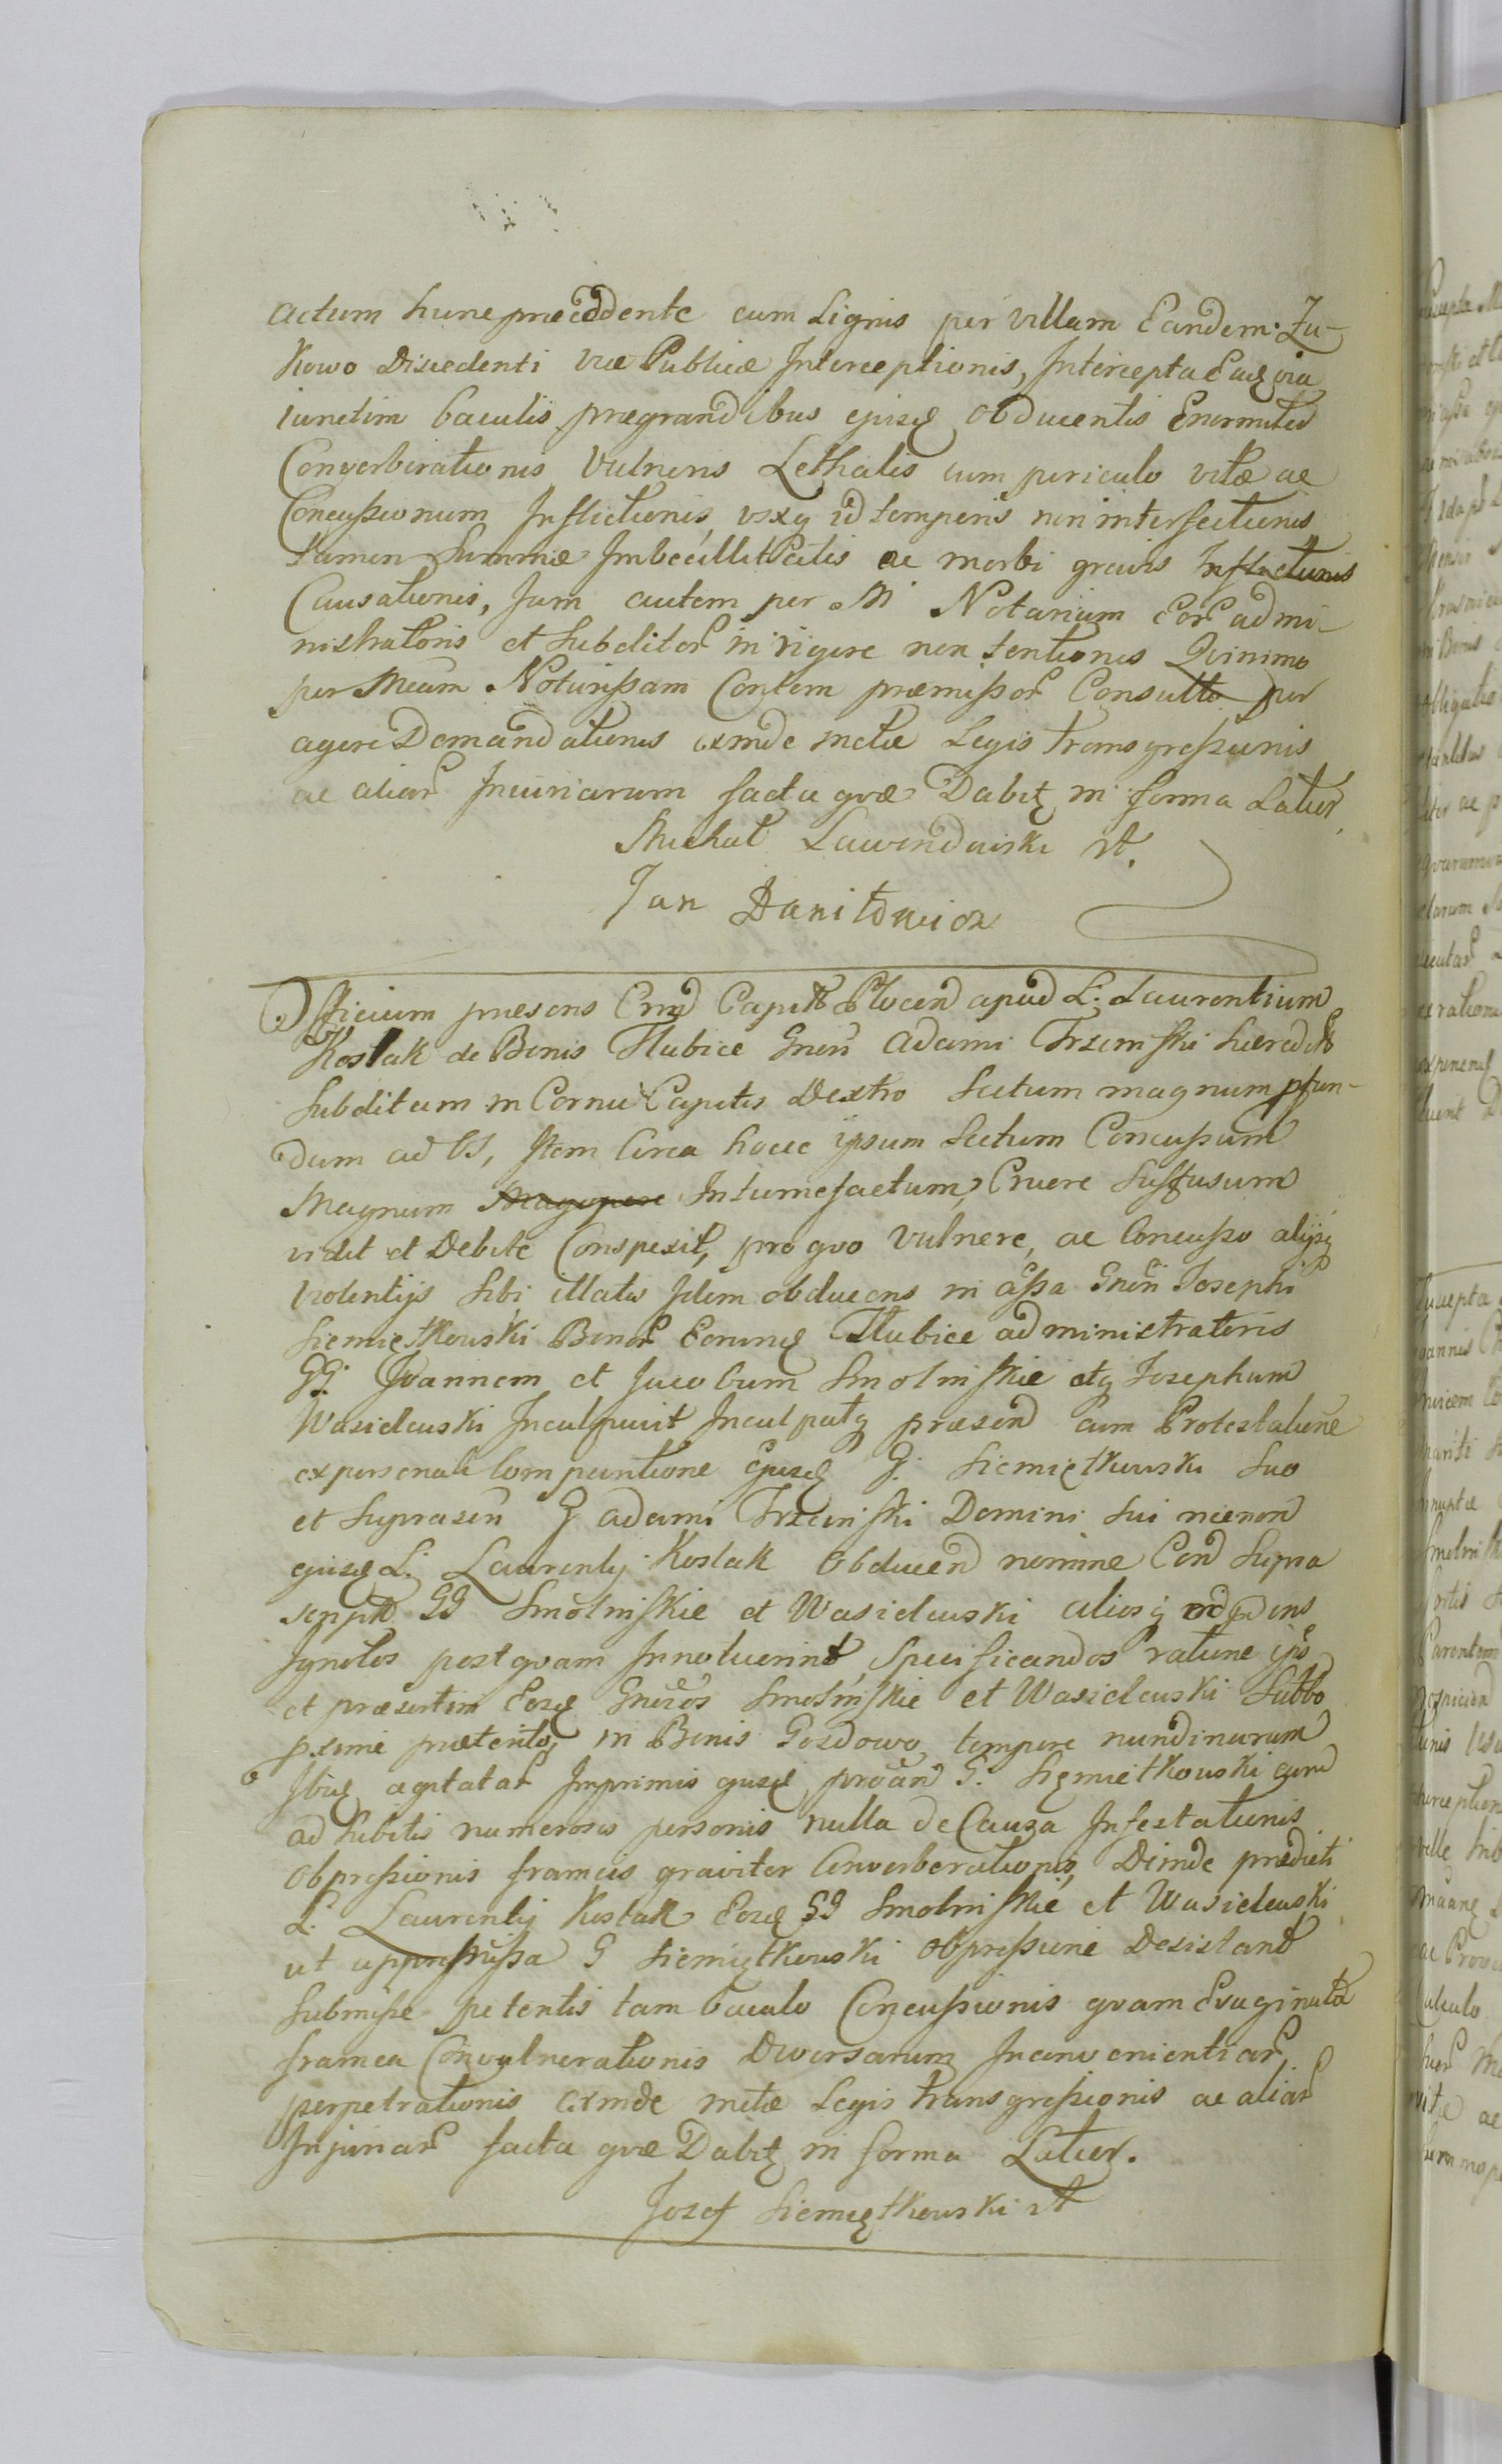 actum hunc præcedente cum Lignis per Villam Eandem Żu-
kowo Discedenti viæ Publicæ Interceptionis, Intercepta Eadq via
iunctim baculis prægrandibus ejusq obducentis Enormiter
Converberationis Vulneris Lethalis cum periculo vitæ ac
Concussionum Inflictionis, usq id temporis non intersectionis
tamen Summæ Imbecillitatis ac morbi gravis Inflictionis
Causationis, Jam autem per M Notariam Eor admi-
nistratoris et Subditor in rigore non tentionis Quinimo
per Meam Notorissam Contem præmissor Consulto per
agere Demandationis exinde metæ Legis transgressionis
ac aliar Iniuriarum facta quæ Dabitq in forma Latior
Michał Lawendowski st.
Jan Daniłowicz
Officium præsens Crmd Capitt Plocen apud L. Laurentium
Kostak de Bonis Tłubice Gnen Adami Trzcinski hæredit
Subditum in Cornu Capitis Dextro Sectum magnum pfun-
dum ad os, Item Circa hocce ipsum Sectum Concussum
Magnum Magopere Intumefactum, Cruore Suffusum
vidit et Debite Conspexit, pro quo Vulnere, ac Concusso alijsq
violentijs Sibi illatis Idem obducens in assa Gnen Josephi
Siemiętkowski Bonor Eorundq Tłubice administratoris
GG. Joannem et Jacobum Smolinskie etq Josephum
Wasielewski Inculpavit Inculpatq præsend cum Protestatione
ex personali comparitione Ejusq G. Siemiętkowski Suo
et Suprasen G Adami Trzcinski Domini Sui necnon
ejusq L. Laurentij Kostak Obducen nomine Con Supra
script GG Smolinskie et Wasielewski aliosq
Ignotos postquam Innotuerint, Specificandos ratione ejs
et præsertim Eosq Gneros Smolinskie et Wasielewski Subbo
pxime præterito, in Bonis Gozdowo tempore nundinarum
Ibiq agitatar Imprimis ejusq G. Siemiętkowski cum
adhibitis numerosis personis nulla de Causa Infestationis
obpressionis frameis graviter Converberationis, Deinde prædicti
L. Laurentij Kostak Eosq GG Smolinskie et Wasielewski
ut G Siemiętkowski obpressione Desistant
Submisse petentis tam baculo Concussionis quam Evaginata
framea Convulnerationis Diversarum Inconvenientiar
perpetrationis exinde metæ Legis transgressionis ac aliar
Injuriar facta quæ Dabitq in forma Latior.
Jozef Siemiętkowski st